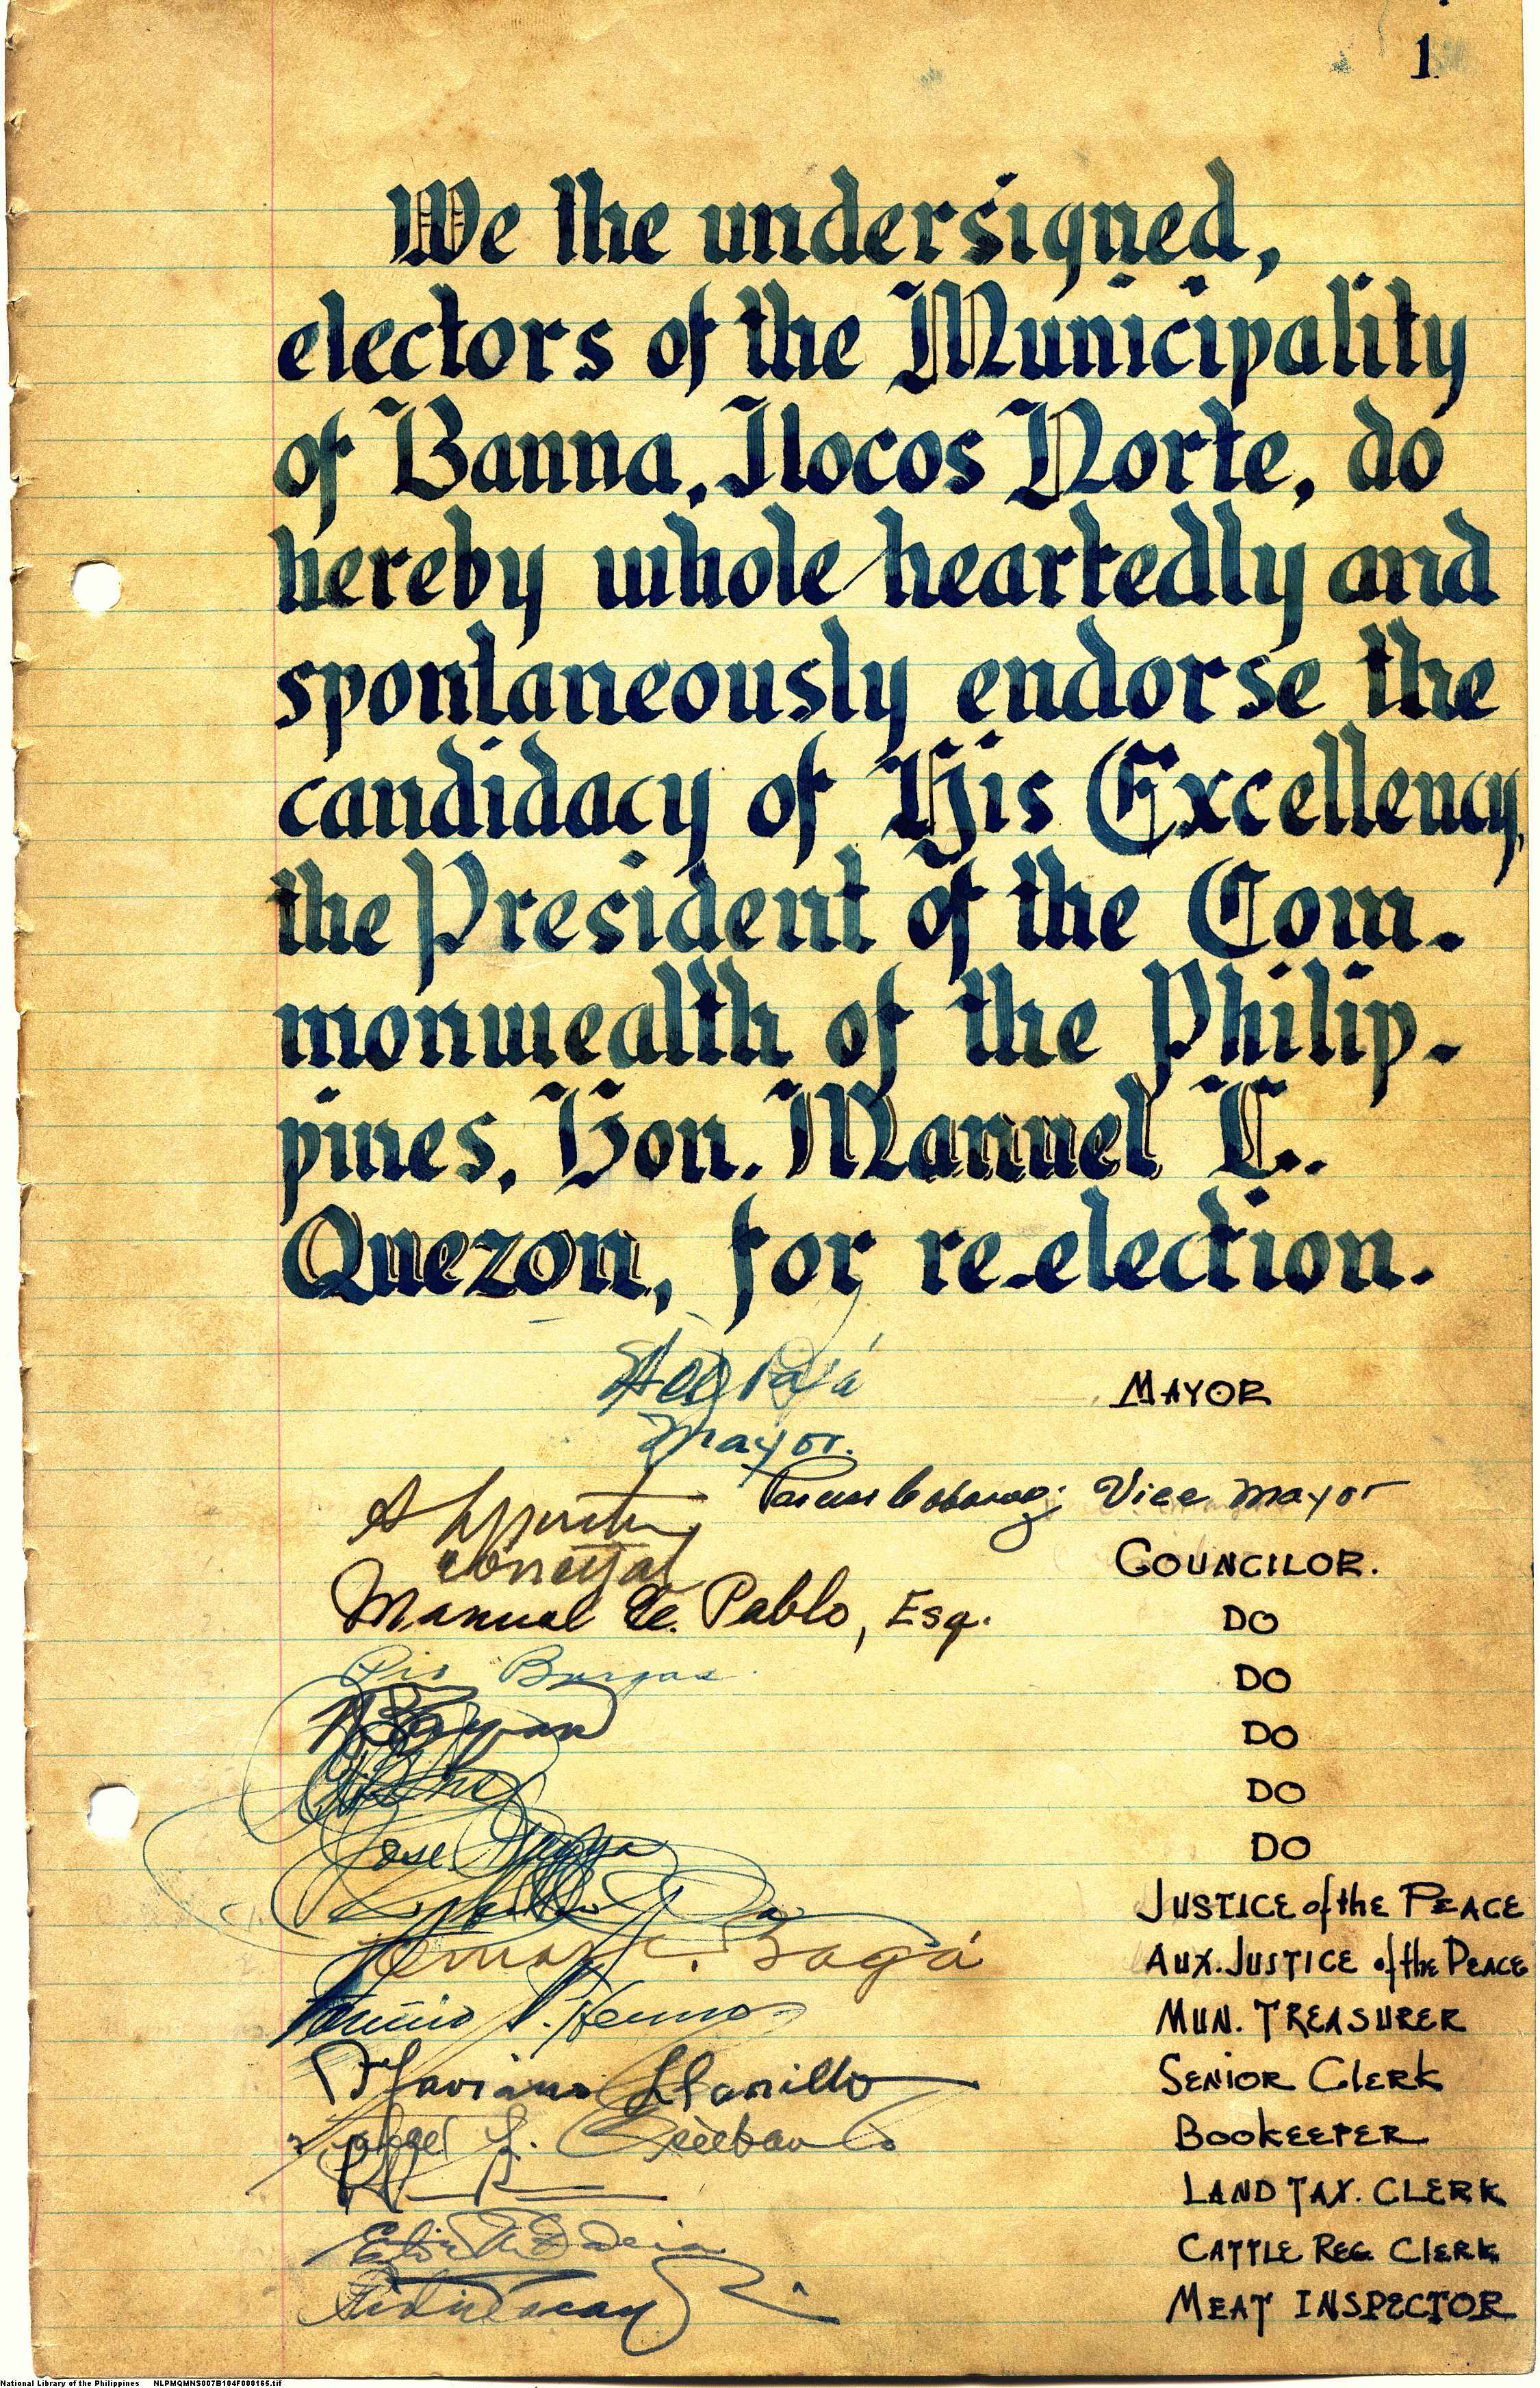 1.
We the undersigned,
electors of the Municipality
of Banna, Ilocos Norte, do
hereby whole heartedly and
spontaneously endorse the
candidacy of His Excellency,
the President of the Com-
monwealth of the Philip-
pines, Hon. Manuel L.
Quezon, for re-election.
MAYOR
Mayor.
Vice Mayor
concejal
COUNCILOR.
Manuel de Pablo, Esq. DO
Pio Burgos DO
DO
DO
Jose DO
JUSTICE of the PEACE
AUX. JUSTICE of the PEACE
MUN. TREASURER
Flaviano Llanillo SENIOR CLERK
L. Esteban BOOKEEPER
LAND TAX. CLERK
CATTLE REG CLERK
MEAT INSPECTOR
National Library of the Philippines NLPMQMNS007B104F000165.tif